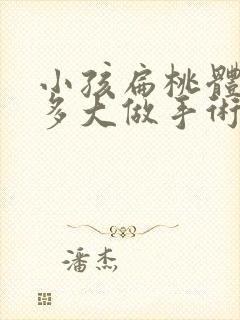 小孩扁桃體
多大做手術
潘杰